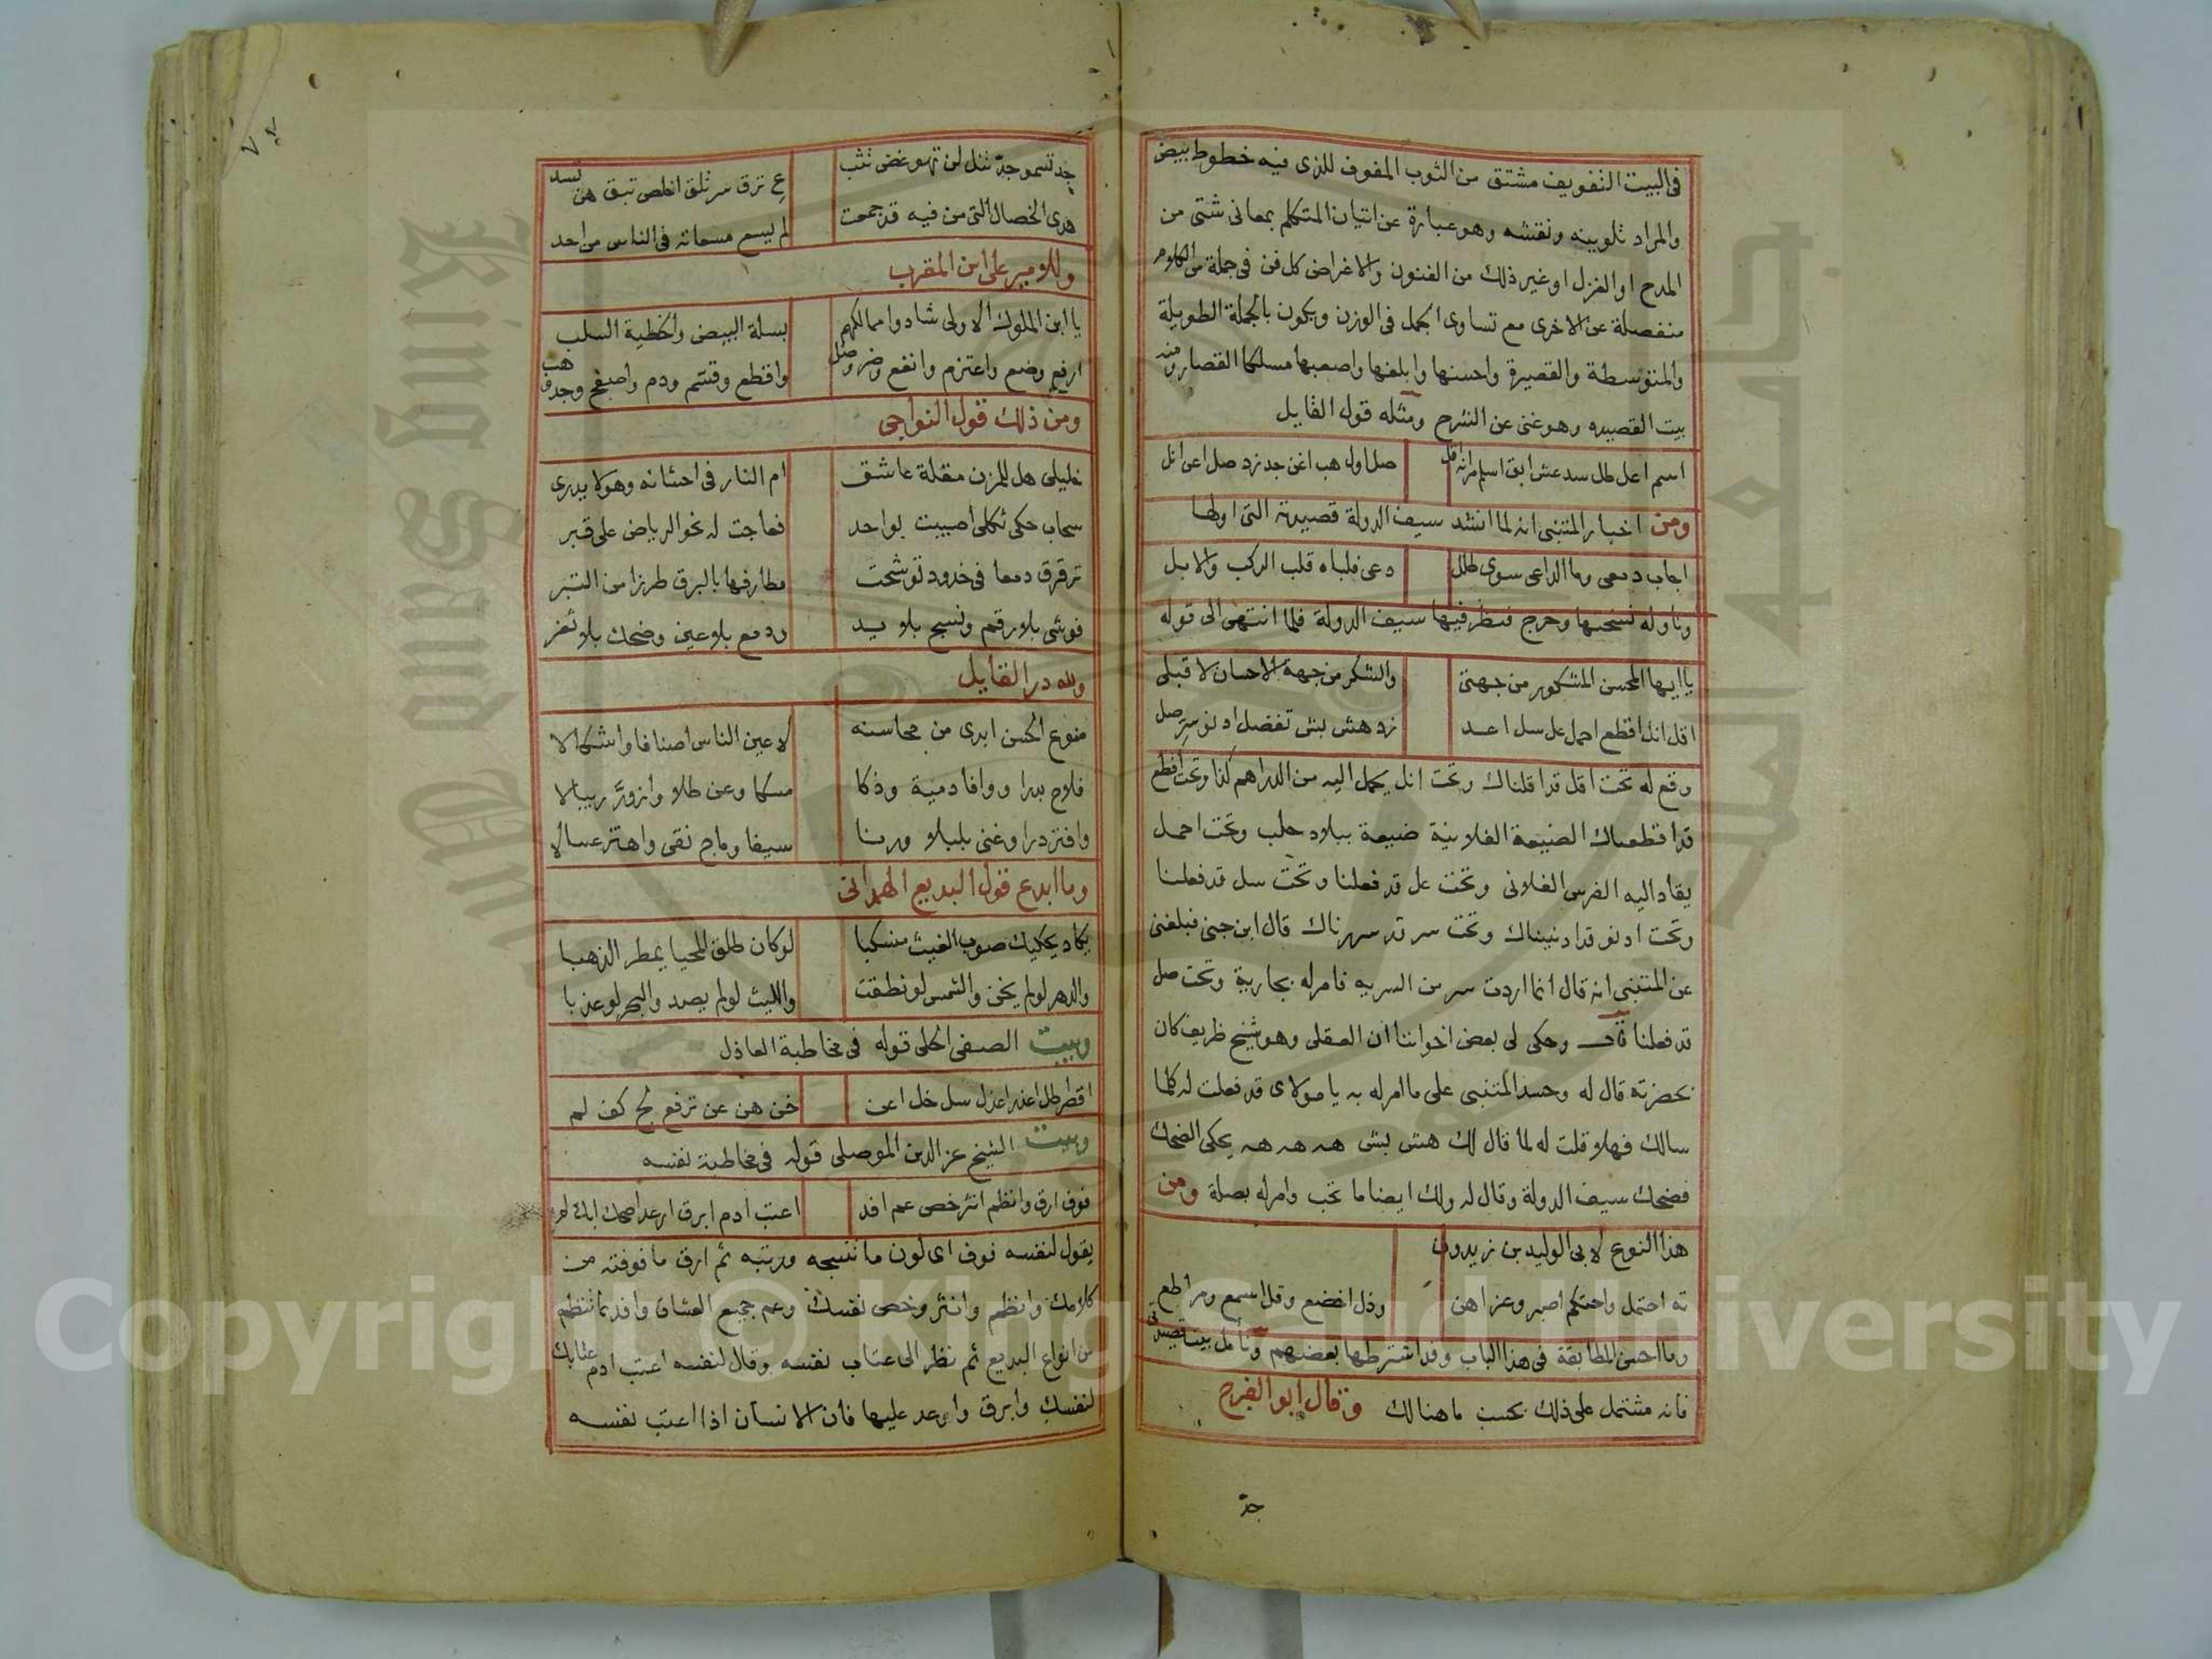 فى البيت التفويف مشتق من الثوب المفوف للذى فيه خطوط بيض
والمراد تلوينه ونقشه وهو عبارة عن اتيان المتكلم بمعانى شتى من
المدح او الغزل او غير ذلك من الفنون والاغراض كل فن فى جملة من الكلام
منفصلة عن الاخرى مع تساوى الجمل فى الوزن ويكون بالجملة الطويلة
والمتوسطة والقصيرة واحسنها وابلغها واصعبها مسلكا القصار ومنه
بيت القصيده وهو غنى عن الشرح ومثله قول القايل
اسم اعل طل سد عش ابق اسلم مر انه اقل صل اول هب اغن جد زد صل اعن انل
ومن اخبار المتنبى انه لما انشد سيف الدولة قصيدته التى اولها
اجاب دمعى وما الداعى سوى طلل دعى فلباه قلب الركب والابل
وناوله نسختها وخرج فنظر فيها سيف الدولة فلما انتهى الى قوله
يا ايها المحسن المشكور من جهتى والشكر من جهة الاحسان لا قبلى
اقل انل اقطع احمل عل سل اعد زد هش بش تفضل ادنو سر صل
وقع له تحت اقل قد اقلناك وتحت انل يحمل اليه من الدراهم كذا وتحت اقطع
قد اقطعناك الضيعة الفلانية ضيعة ببلاد حلب وتحت احمل
يقاد اليه الفرس الفلانى وتحت عل قد فعلنا وتحت سل قد فعلنا
وتحت ادنو قد ادنيناك وتحت سر قد سررناك قال ابن جنى فبلغنى
عن المتنبى انه قال انما اردت سر من السريه فامر له بجارية وتحت صل
قد فعلنا قال وحكى لى بعض اخواننا ان العقلى وهو شيخ ظريف كان
بحضرته قال له وحسد المتنبى على ما امر له به يا مولاى قد فعلت له كلما
سالك فهلا قلت له لما قال لك هش بش هه هه هه يحكى الضحك
فضحك سيف الدولة وقال له ولك ايضا ما تحب وامر له بصلة ومن
هذا النوع لابى الوليد بن زيدون
ته احتمل واحتكم اصبر وعز اهن وذل اخضع وقل اسمع ومر اطع
وما احسن المطابقة فى هذا الباب وقد اشترطها بعضهم وتامل بيت قصيدتى
فانه مشتمل على ذلك بحسب ما هنالك وقال ابو الفرج
جد
جد تسمو جد تنل لن تهو غض تثب ع ترق سر تلق اخلص تبق هن تسد
هدى الخصال التى من فيه قد جمعت لم يسع مسعاته فى الناس من احد
وللامير على ابن المقرب
يا ابن الملوك الاولى شادوا ممالكهم بسلة البيض والخطية السلب
ارفع وضع واعتزم وانفع وضر وصل واقطع وقسم ودم واصفح وجد وهب
ومن ذلك قول النواجى
خليلى هل للمزن مقلة عاشق ام النار فى احشائه وهو لا يدرى
سحاب حكى ثكلى اصيبت بواحد فعاجت له نحو الرياض على قبر
ترقرق دمعا فى خدود توشحت مطارفها بالبرق طرزا من التبر
فوشى بلا رقم ونسج بلا يد ودمع بلا عين وضحك بلا ثغر
ولله در القايل
منوع الحسن ابدى من محاسنه لاعين الناس اصنافا واشكالا
فلاح بدرا ووافا دمية وذكا مسكا وعن طلا وازور ريبالا
وافتر درا وغنى بلبلا ورنا سيفا وماج نقى واهتز عسالا
وما ابدع قول البديع الهمدانى
يكاد يحكيك صوب الغيث منسكبا لو كان طلق المحيا يمطر الذهبا
والدهر لو لم يخن والشمس لو نطقت والليث لو لم يصد والبحر لو عذبا
وبيت الصفى الحلى قوله فى مخاطبة العاذل
اقصر اطل اعذر اعذل سل خل اعن خن هن عن ترفع لج كف لم
وبيت الشيخ عز الدين الموصلى قوله فى مخاطبة نفسه
فوف ارق وانظم انثر خص عم افد اعتب ادم ابرق ارعد اضحك ابك لم
يقول لنفسه فوف اى لون ما تنسجه ورتبه ثم ارق ما فوفته من
كلامك وانظم وانثر وخص نفسك وعم جميع العشاق وافد بما تنظم
من انواع البديع ثم نظر الى عتاب نفسه وقال لنفسه اعتب ادم عتابك
لنفسك وابرق وارعد عليها فان الانسان اذا اعتب نفسه
Copyright © King Saud University